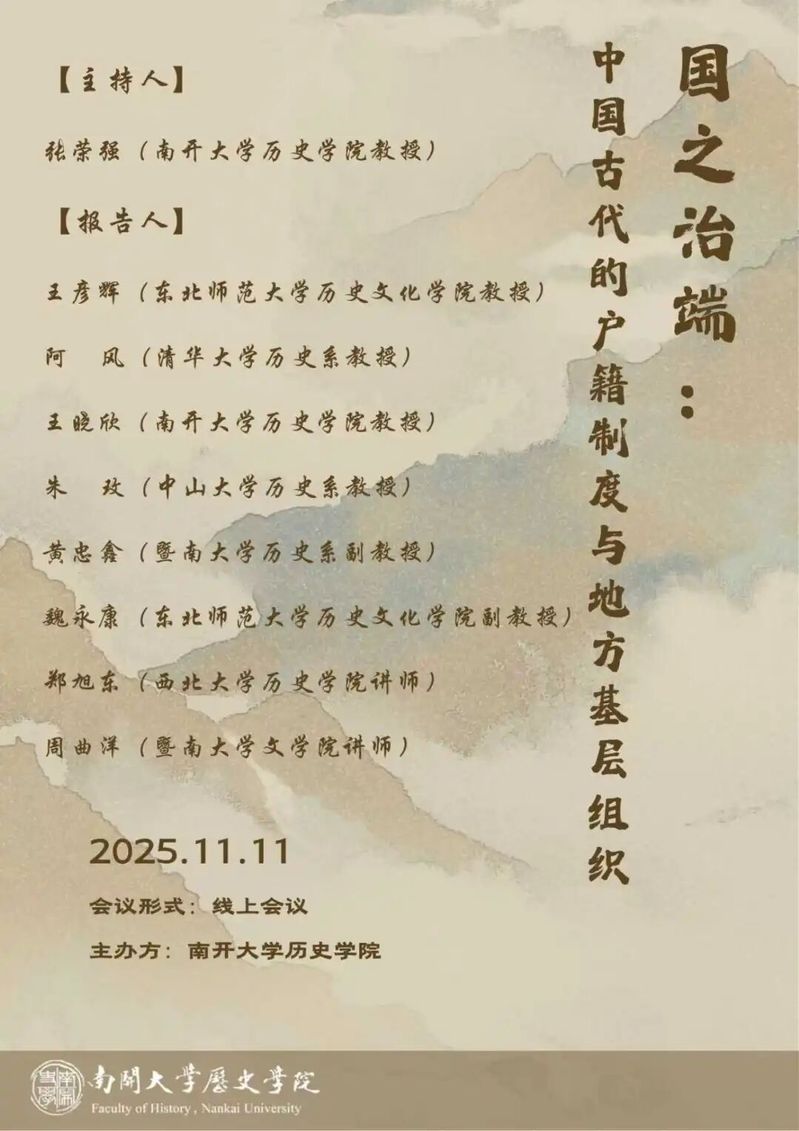 国之治端：
中国古代的户籍制度与地方基层组织
【主持人】
张荣强（南开大学历史学院教授）
【报告人】
王彦辉（东北师范大学历史文化学院教授）
阿　风（清华大学历史系教授）
王晓欣（南开大学历史学院教授）
朱　玫（中山大学历史系教授）
黄忠鑫（暨南大学历史系副教授）
魏永康（东北师范大学历史文化学院副教授）
郑旭东（西北大学历史学院讲师）
周曲洋（暨南大学文学院讲师）
2025.11.11
会议形式：线上会议
主办方：南开大学历史学院
南開大學歷史學院
Faculty of History , Nankai University